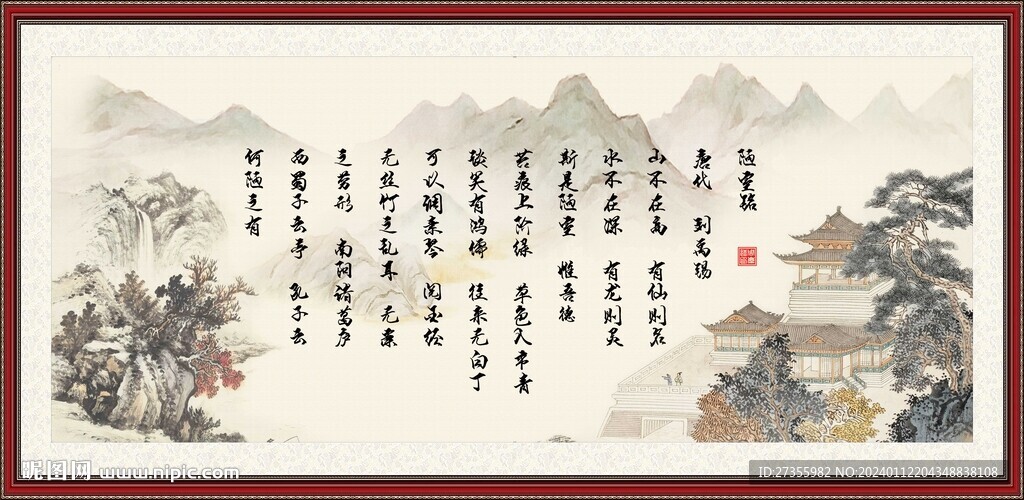 陋室铭
唐代 刘禹锡
山不在高 有仙则名
水不在深 有龙则灵
斯是陋室 惟吾德
苔痕上阶绿 草色入帘青
谈笑有鸿儒 往来无白丁
可以调素琴 阅金经
无丝竹之乱耳 无案
之劳形 南阳诸葛庐
西蜀子云亭 孔子云
何陋之有
昵图网 www.nipic.com
ID:27355982 NO:20240112204348838108